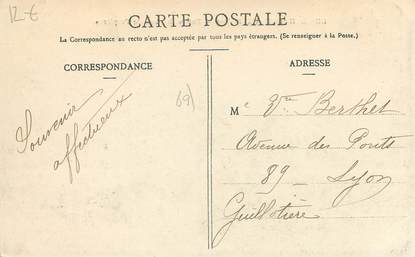 12-€
CARTE POSTALE
La Correspondance au recto n'est pas acceptée par tous les pays étrangers. (Se renseigner à la Poste.)
CORRESPONDANCE
ADRESSE
Souvenir
affectueux
69)
Me Vve Berthet
Avenue des Ponts
89 - Lyon
Guillotière